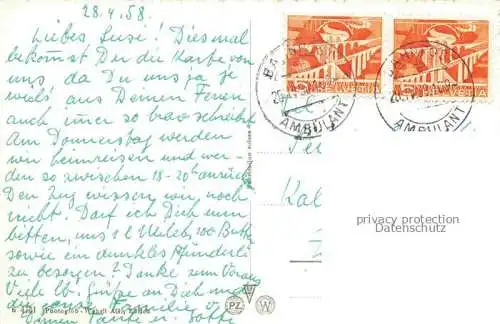 28.4.58.
Liebes Susi! Diesmal
bekommst Du die Karte von
uns da Du uns ja je
weils aus Deinen Ferien
auch immer so brav schreibst.
Am Donnerstag werden
wir heimreisen und wer-
den so zwischen 18-20h
Den Zug wissen wir noch
nicht. Darf ich Dich nun
bitten, uns 1 l Milch, 100 Butter
sowie ein dunkles Pfünderli
zu besorgen? Danke zum Voraus
Viele lb. Grüsse an Dich und
die ganze Familie v.
Deinen Tante u.
HELVETIA
HELVETIA
AMBULANT
AMBULANT
privacy protection
Datenschutz
Photoglob-Wehrli
PZ
W